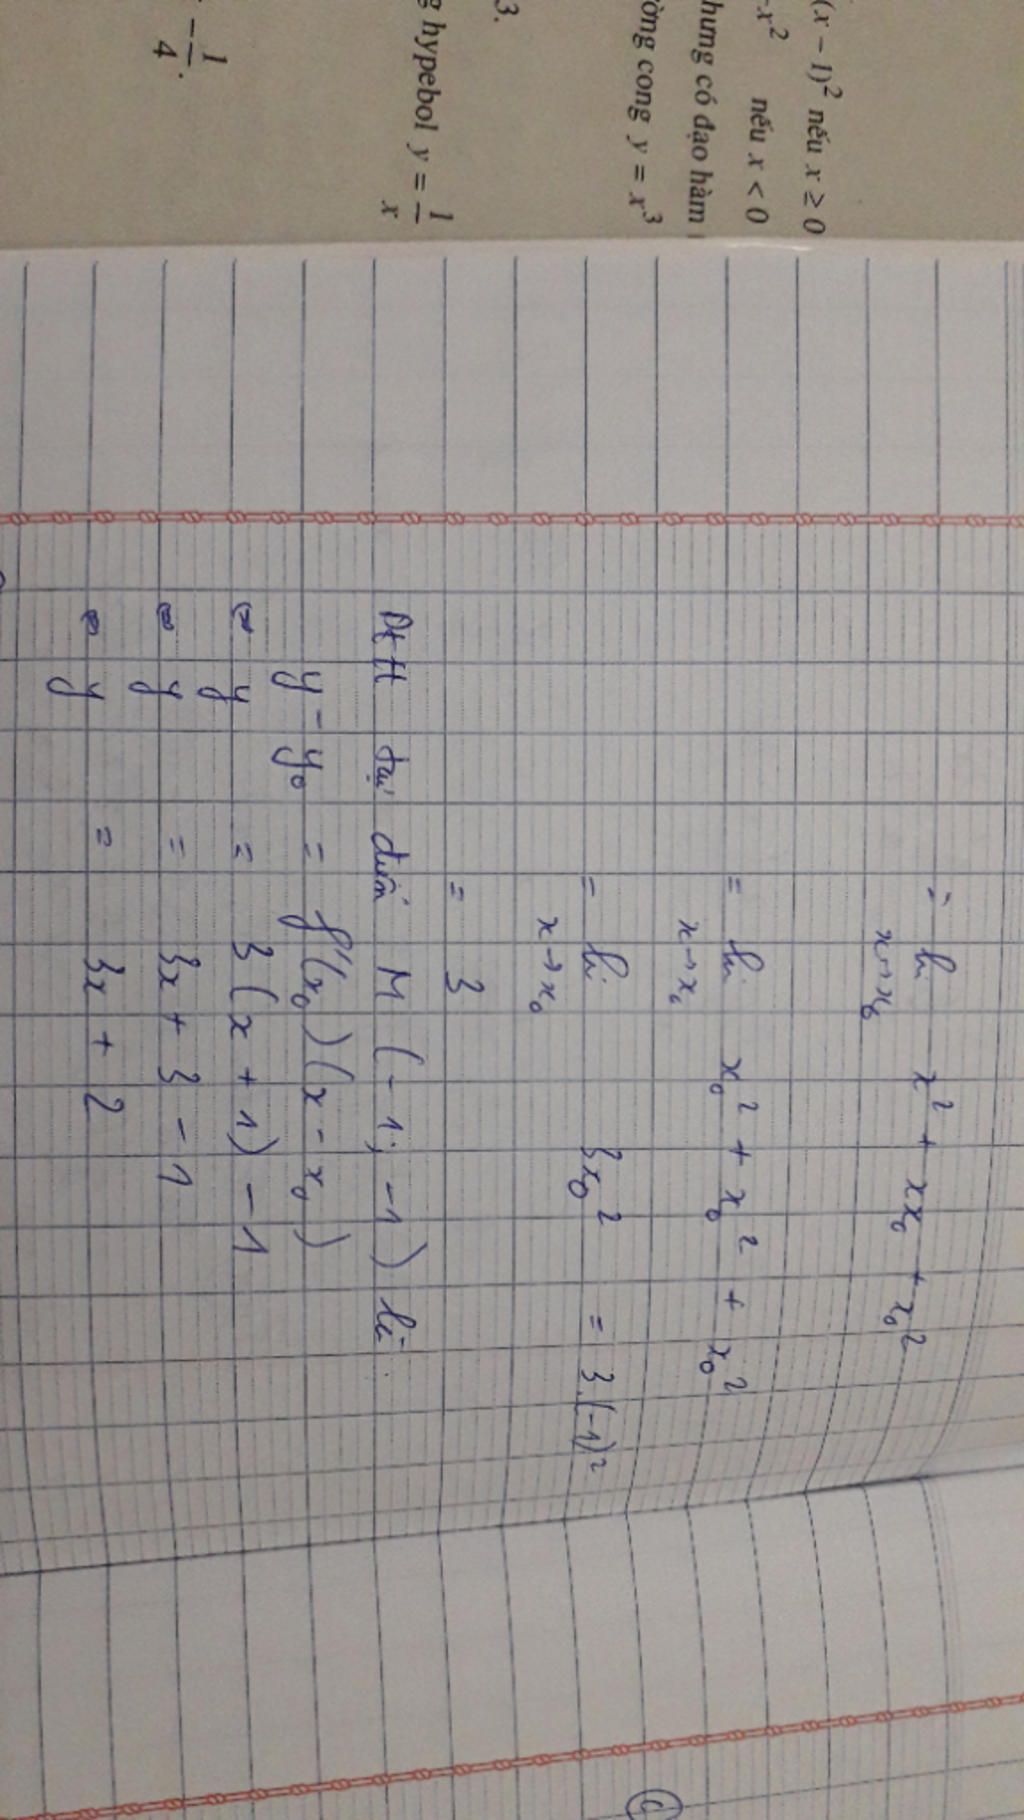 (x − 1)² nếu x ≥ 0
-x² nếu x < 0
hưng có đạo hàm
ường cong y = x³
3.
g hypebol y = 1/x
-1/4.
= li x→x₀ x² + xx₀ + x₀²
= li x→x₀ x₀² + x₀² + x₀²
= li x→x₀ 3x₀² = 3.(-1)²
= 3
Pttt tại điểm M (-1; -1) là:
y - y₀ = f'(x₀)(x - x₀)
⇔ y = 3(x + 1) - 1
⇔ y = 3x + 3 - 1
⇔ y = 3x + 2